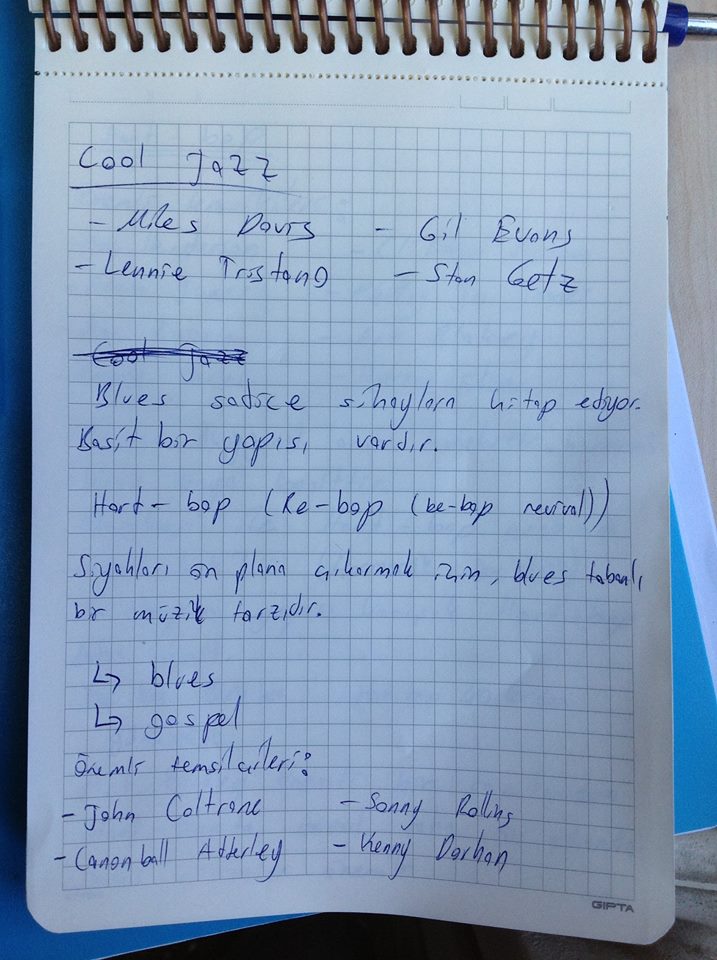 Cool Jazz
- Miles Davis - Gil Evans
- Lennie Tristano - Stan Getz
Cool Jazz
Blues sadice sihaylara hitap ediyor.
Basit bir yapısı vardır.
Hart-bop (Re-bop (be-bop revival))
Siyahları ön plana çıkarmak için, blues tabanlı
bir müzik tarzıdır.
↳ blues
↳ gospel
Önemli temsilcileri:
- John Coltrane - Sonny Rollins
- Canonball Adderley - Kenny Dorhan
GIPTA